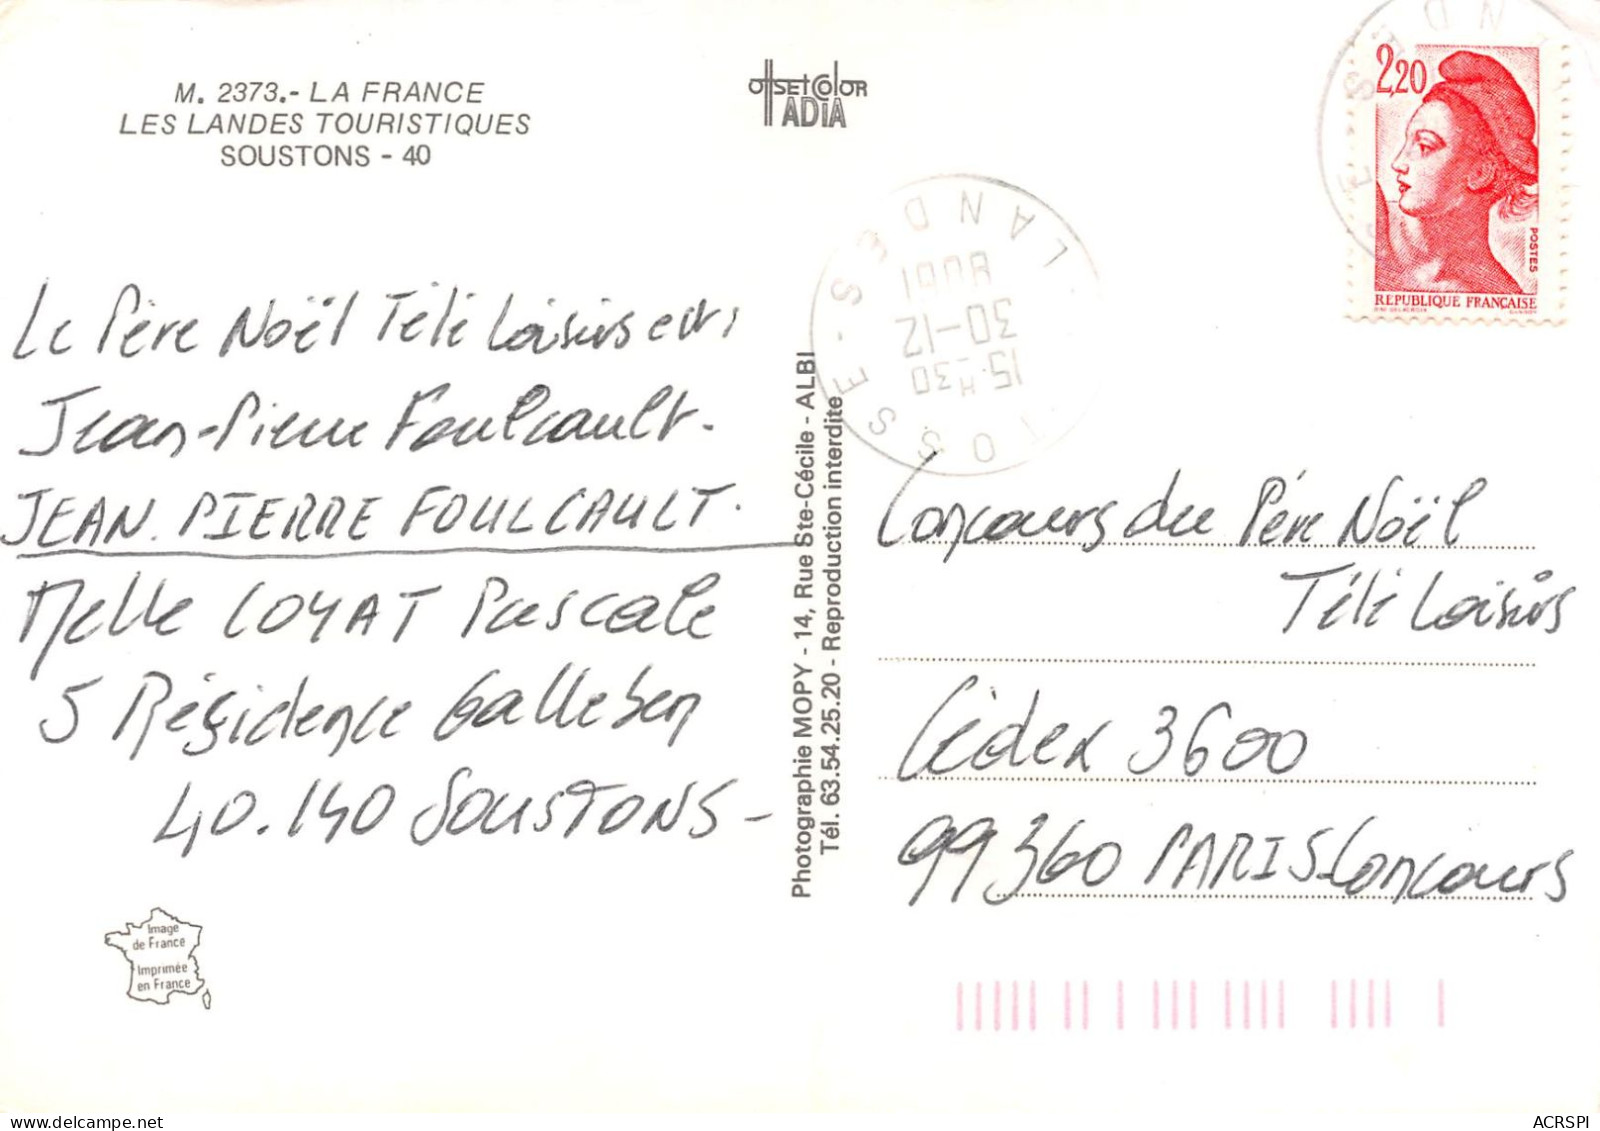 M. 2373.- LA FRANCE
LES LANDES TOURISTIQUES
SOUSTONS - 40
OffsetColor
ADIA
2,20
POSTES
REPUBLIQUE FRANÇAISE
LANDES
30-12
15 H 30
TOSSE
Le Père Noël Télé Loisirs est
Jean-Pierre Foulcault.
JEAN. PIERRE FOULCAULT.
Melle COYAT Pascale
5 Résidence Galleben
40.140 SOUSTONS -
Photographie MOPY - 14, Rue Ste-Cécile - ALBI
Tél. 63.54.25.20 - Reproduction interdite
Concours du Père Noël
Télé Loisirs
Cédex 3600
99360 PARIS-Concours
Image
de France
Imprimée
en France
ACRSPI